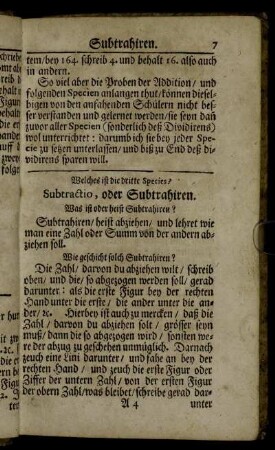 Subtrahiren. 7
tem/bey 164. schreib 4. und behalt 16. also auch
in andern.
So viel aber die Proben der Addition/ und
folgenden Specien anlangen thut/können diesel-
bigen von den anfahenden Schülern nicht bes-
ser verstanden und gelernet werden/sie seyn dañ
zuvor aller Specien (sonderlich deß Dividirens)
wol unterrichtet: darumb ich sie bey jeder Spe-
cie zu setzen unterlassen/ und biß zu End deß di-
vidirens sparen will.
Welches ist die dritte Species?
Subtractio, oder Subtrahiren.
Was ist oder heist Subtrahiren?
Subtrahiren/ heist abziehen/ und lehret wie
man eine Zahl oder Summ von der andern ab-
ziehen soll.
Wie geschicht solch Subtrahiren?
Die Zahl/ darvon du abziehen wilt/ schreib
oben/ und die/ so abgezogen werden soll/ gerad
darunter: als die erste Figur bey der rechten
Hand unter die erste/ die ander unter die an-
der/ &c. Hierbey ist auch zu mercken/ daß die
Zahl/ darvon du abziehen solt/ grösser seyn
muß/ dann die so abgezogen wird/ sonsten we-
re der abzug zu geschehen unmüglich. Darnach
zeuch eine Lini darunter/ und fahe an bey der
rechten Hand/ und zeuch die erste Figur oder
Ziffer der untern Zahl/ von der ersten Figur
der obern Zahl/was bleibet/schreibe gerad dar-
A 4 unter